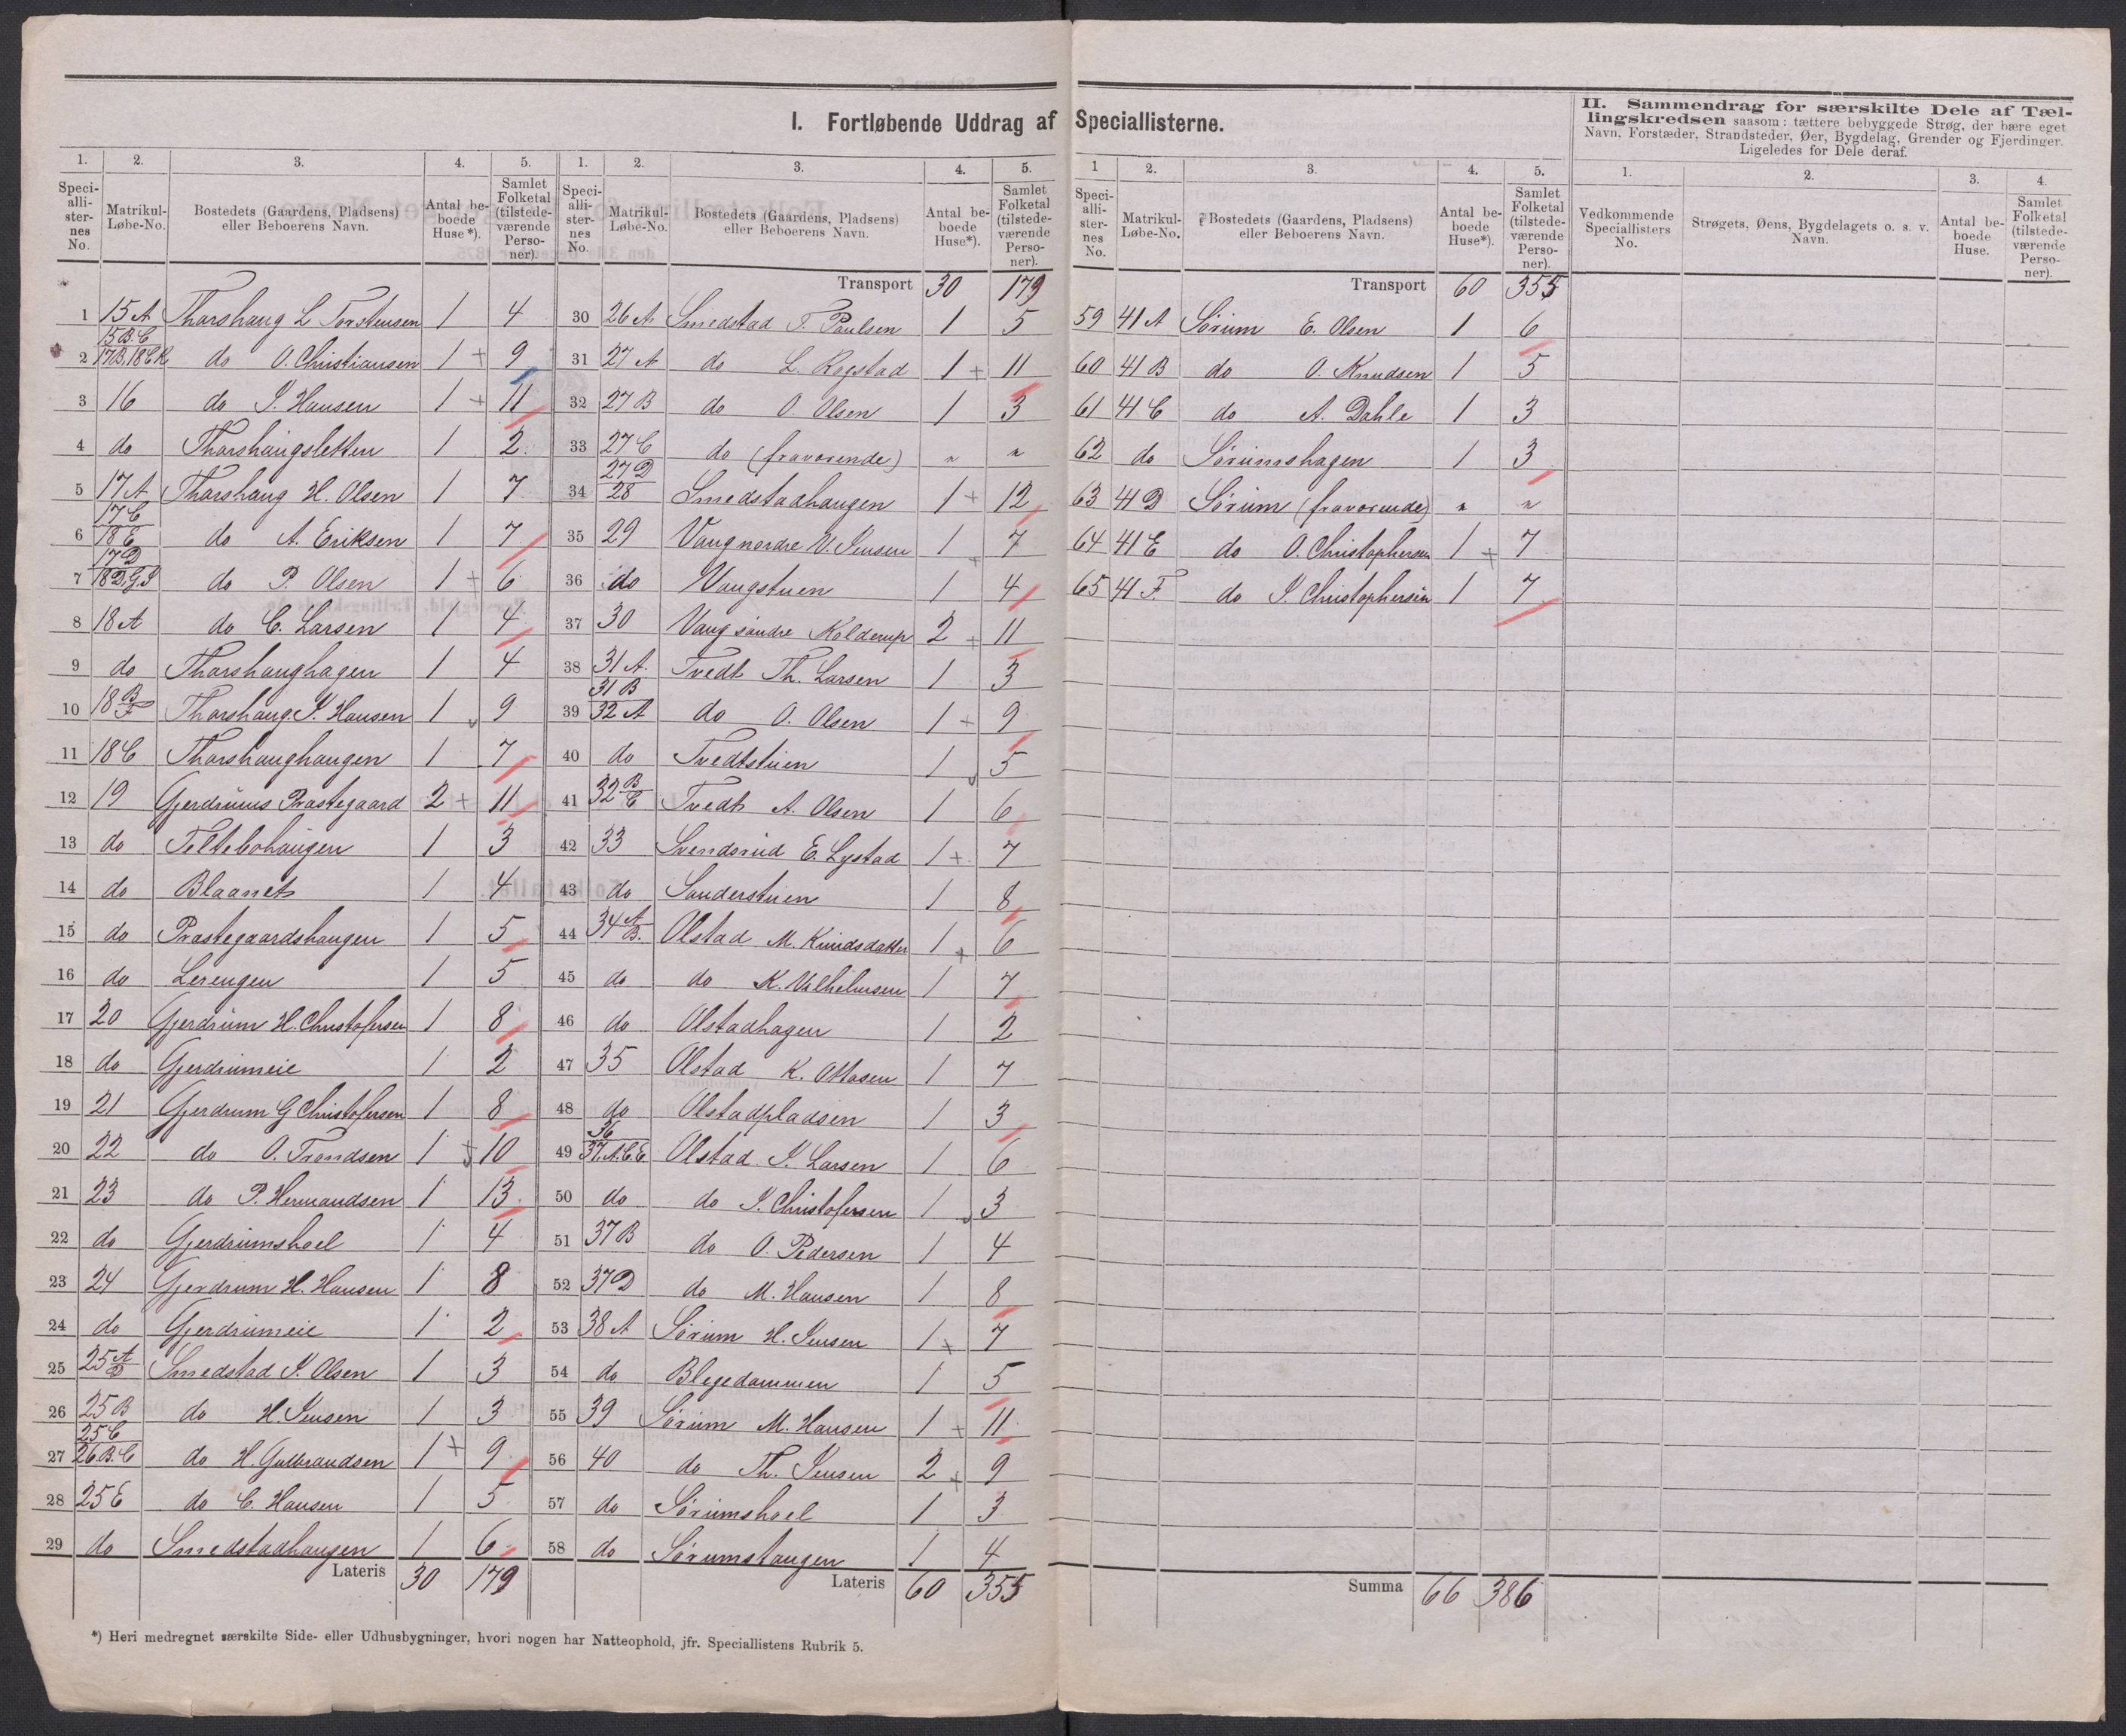 I. Fortløbende Uddrag af Speciallisterne.
II. Sammendrag for særskilte Dele af Tæl-
lingskredsen saasom: tættere bebyggede Strøg, der bære eget
Navn, Forstæder, Strandsteder, Øer, Bygdelag, Grender og Fjerdinger.
Ligeledes for Dele deraf.
1. 2. 3. 4. 5.
Speci-alli-ster-nes No. Matrikul-Løbe-No. Bostedets (Gaardens, Pladsens) eller Beboerens Navn. Antal be-boede Huse*). Samlet Folketal (tilstede-værende Perso-ner).
1 15 A Thorshaug L Torstensen 1 4
2 15 B.C 17B,18CK do O. Christiansen 1 + 9
3 16 do J. Hansen 1 + 11
4 do Thorshaugsletten 1 2
5 17 A Thorshaug H. Olsen 1 7
6 17 C 18 E do A. Eriksen 1 7
7 17 D 18 D.G.I do P. Olsen 1 + 6
8 18 A do C. Larsen 1 4
9 do Thorshaughagen 1 4
10 18 B F Thorshaug J. Hansen 1 9
11 18 C Thorshaughaugen 1 7
12 19 Gjerdrums Præstegaard 2 + 11
13 do Teltebohaugen 1 3
14 do Blaanet 1 4
15 do Præstegaardshaugen 1 5
16 do Lerengen 1 5
17 20 Gjerdrum H. Christofersen 1 8
18 do Gjerdrumeie 1 2
19 21 Gjerdrum G Christofersen 1 8
20 22 do O. Trondsen 1 + 10
21 23 do P. Hermandsen 1 13
22 do Gjerdrumshoel 1 4
23 24 Gjerdrum H. Hansen 1 8
24 do Gjerdrumeie 1 2
25 25 A D Smedstad J. Olsen 1 3
26 25 B do H. Jensen 1 3
27 25 C 26 B.C do H. Gulbrandsen 1 + 9
28 25 E do C. Hansen 1 5
29 do Smedstadhaugen 1 6
Lateris 30 179
1. 2. 3. 4. 5.
Speci-alli-ster-nes No. Matrikul-Løbe-No. Bostedets (Gaardens, Pladsens) eller Beboerens Navn. Antal be-boede Huse*). Samlet Folketal (tilstede-værende Perso-ner).
Transport 30 179
30 26 A Smedstad T. Paulsen 1 5
31 27 A do L. Rogstad 1 + 11
32 27 B do O. Olsen 1 3
33 27 C do (fraværende) " "
34 27 D 28 Smedstadhaugen 1 + 12
35 29 Vaug nordre N. Jensen 1 + 7
36 do Vaugstuen 1 4
37 30 Vaug søndre Kolderup 2 + 11
38 31 A. Tvedt Th. Larsen 1 3
39 31 B 32 A do O. Olsen 1 + 9
40 do Tvedtstuen 1 5
41 32 B C Tvedt A. Olsen 1 6
42 33 Svendsrud E. Lystad 1 + 7
43 do Sanderstuen 1 8
44 34 A B. Olstad M. Knudsdatter 1 + 6
45 do do K. Vilhelmsen 1 7
46 do Olstadhagen 1 2
47 35 Olstad K. Ottosen 1 7
48 do Olstadpladsen 1 3
49 36 37.A.C.E Olstad J. Larsen 1 6
50 do do J. Christofersen 1 3
51 37 B do O. Pedersen 1 4
52 37 D do M. Hansen 1 8
53 38 A Sørum H. Jensen 1 + 7
54 do Blegedammen 1 5
55 39 Sørum M. Hansen 1 + 11
56 40 do Th. Jensen 2 + 9
57 do Sørumshoel 1 3
58 do Sørumshaugen 1 4
Lateris 60 355
1 2. 3. 4. 5.
Speci-alli-ster-nes No. Matrikul-Løbe-No. Bostedets (Gaardens, Pladsens) eller Beboerens Navn. Antal be-boede Huse*). Samlet Folketal (tilstede-værende Perso-ner).
Transport 60 355
59 41 A Sørum E. Olsen 1 6
60 41 B do O. Knudsen 1 5
61 41 C do A. Dahle 1 3
62 do Sørumshagen 1 3
63 41 D Sørum (fraværende) " "
64 41 E do O. Christophersen 1 + 7
65 41 F. do J. Christophersen 1 7
Summa 66 386
1. 2. 3. 4.
Vedkommende Speciallisters No. Strøgets, Øens, Bygdelagets o. s. v. Navn. Antal be-boede Huse. Samlet Folketal (tilstede-værende Perso-ner).
*) Heri medregnet særskilte Side- eller Udhusbygninger, hvori nogen har Natteophold, jfr. Speciallistens Rubrik 5.